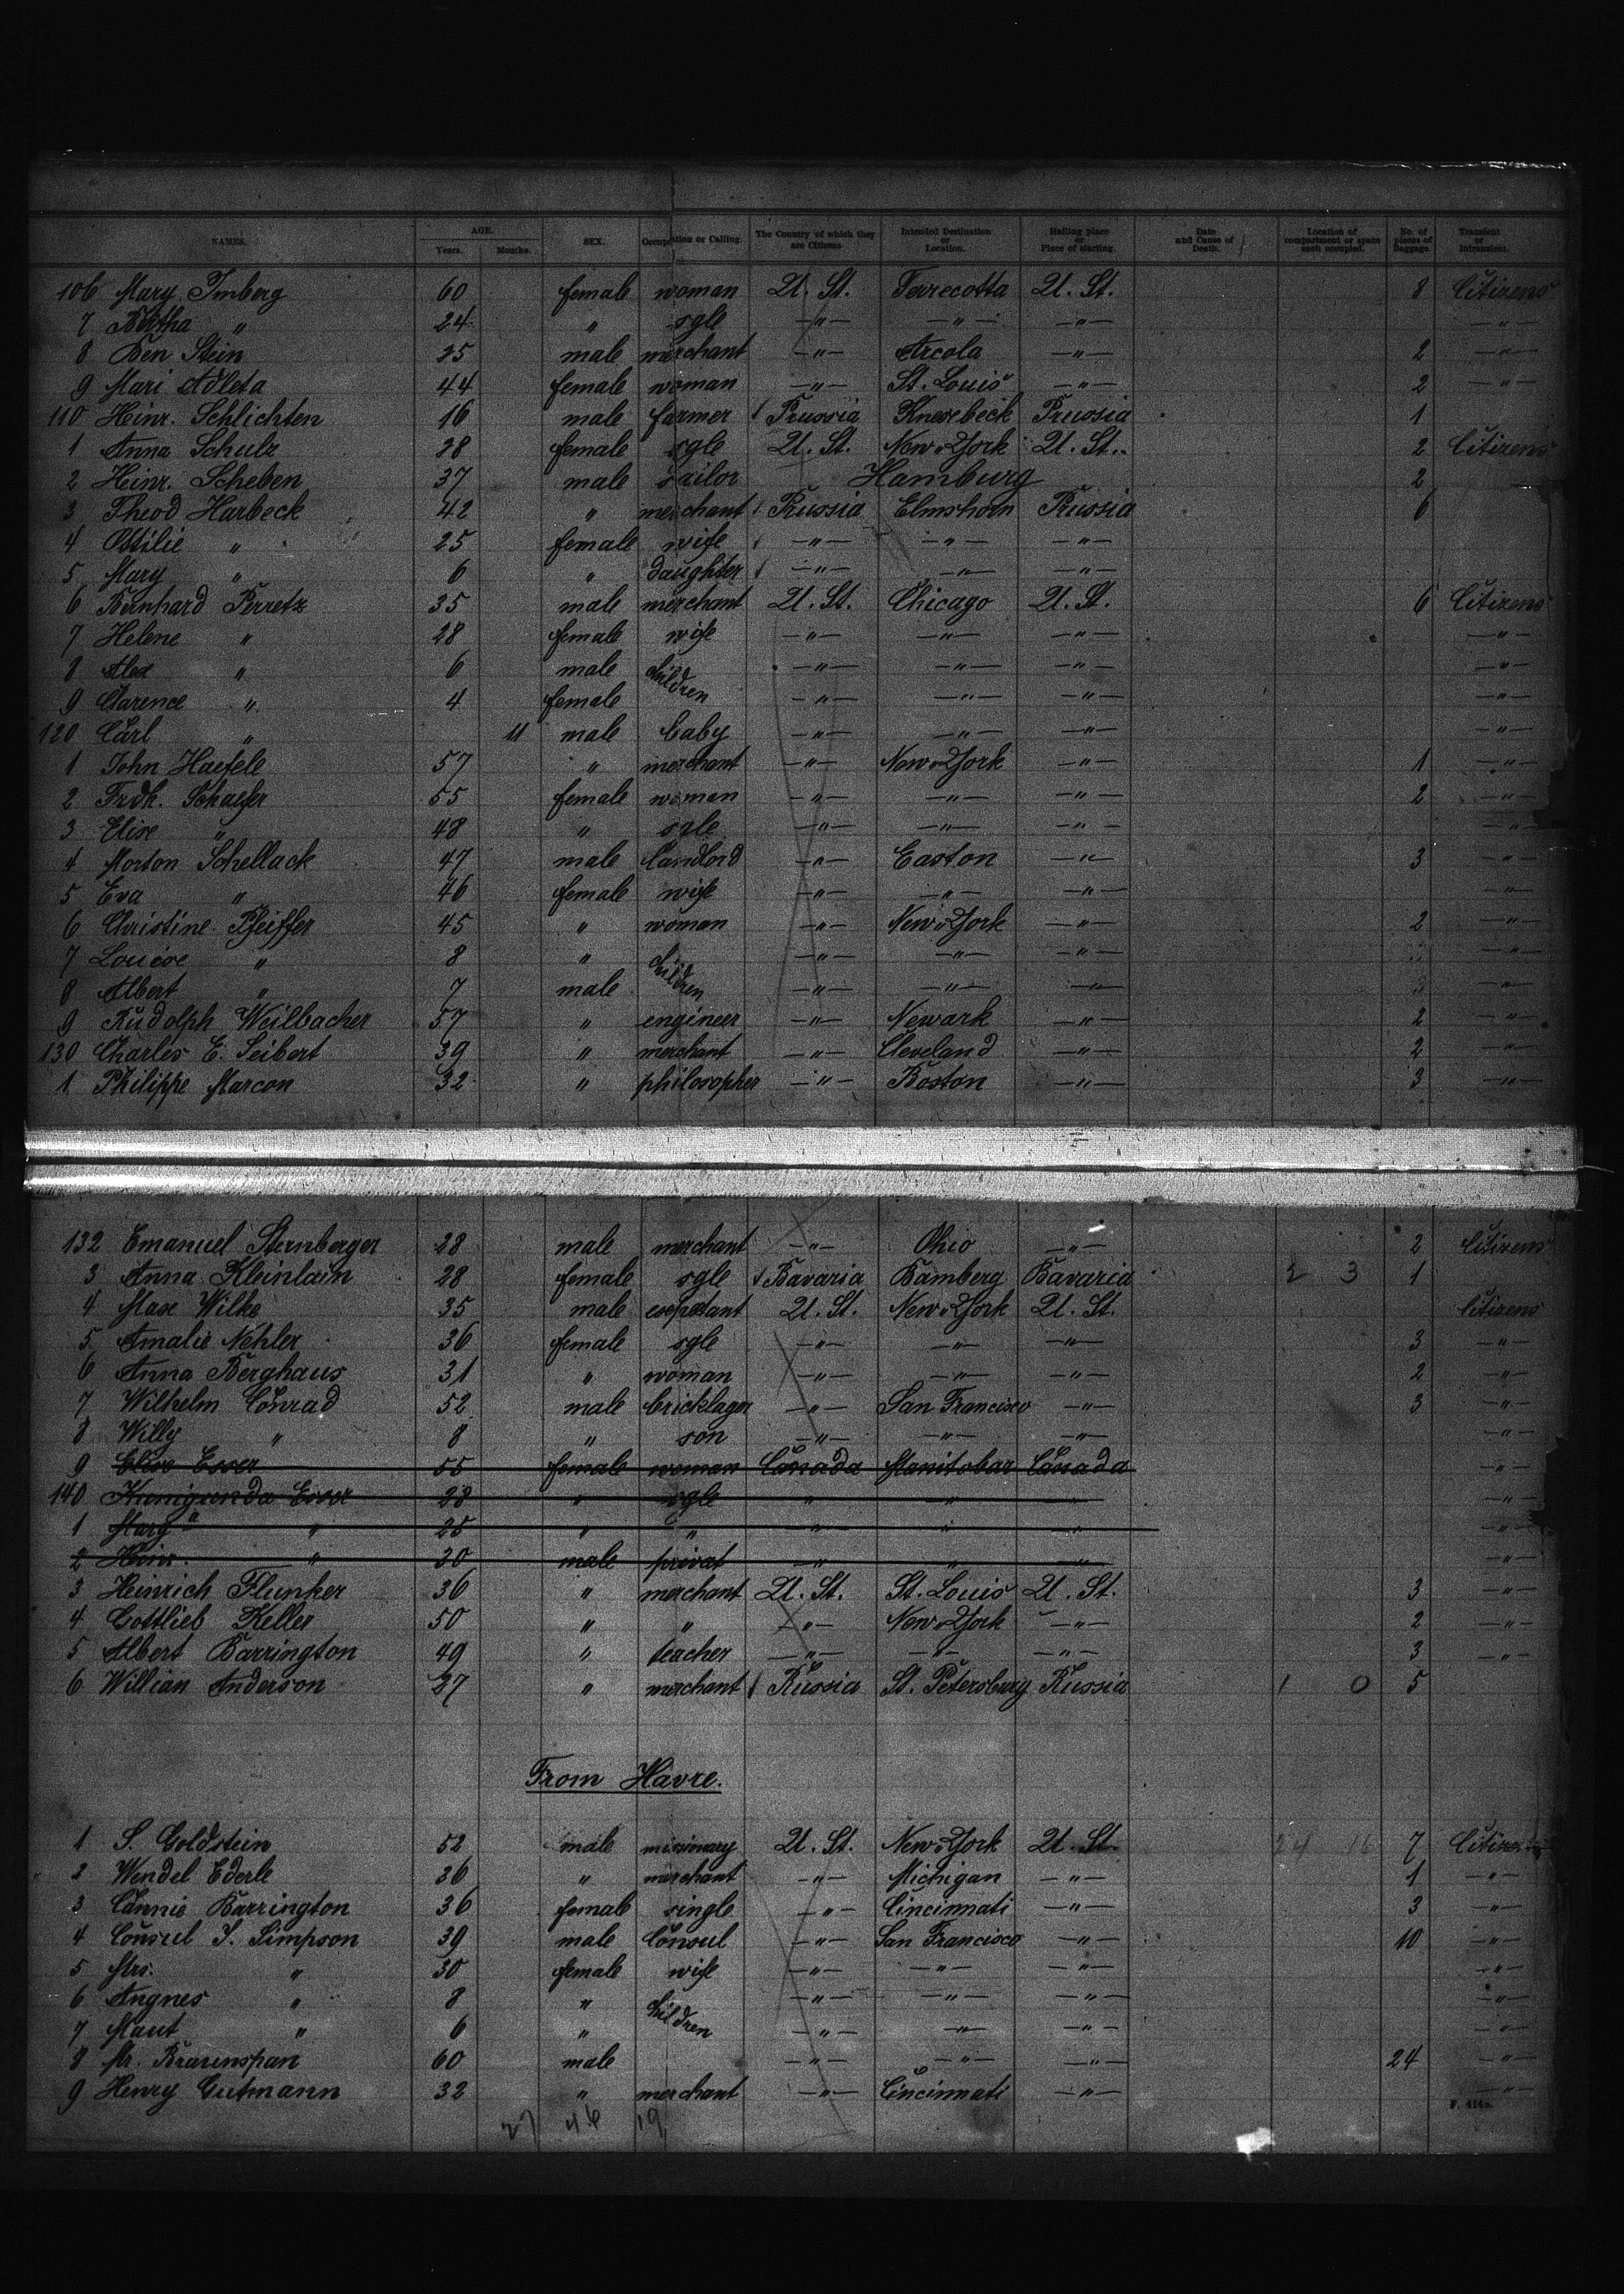 NAMES. AGE. Years. Months. SEX. Occupation or Calling. The Country of which they are Citizens Intended Destination or Location. Hailing place or Place of starting. Date and Cause of Death. Location of compartment or space each occupied. No. of pieces of Baggage. Transient or Intransient.
106 Mary Imberg 60 female woman U. St. Terrecotta U. St. 8 Citizens
7 Bertha " 24 " sgle —"— —"— —"— —"—
8 Ben Stein 25 male merchant —"— Arcola —"— 2 —"—
9 Mari Adleta 44 female woman —"— St. Louis —"— 2 —"—
110 Heinr. Schlichten 16 male farmer Prussia Knesebeck Prussia 1
1 Anna Schulz 28 female sgle U. St. New-York U. St. 2 Citizens
2 Heinr. Scheben 37 male sailor Hamburg 2
3 Theod Harbeck 42 " merchant Prussia Elmshorn Prussia 6
4 Ottilie " 25 female wife —"— —"— —"—
5 Mary " 6 " daughter —"— —"— —"—
6 Bernhard Perretz 35 male merchant U. St. Chicago U. St. 6 Citizens
7 Helene " 28 female wife —"— —"— —"— —"—
8 Alex " 6 male children —"— —"— —"— —"—
9 Clarence " 4 female —"— —"— —"— —"—
120 Carl " 11 male baby —"— —"— —"— —"—
1 John Haefele 57 " merchant —"— New-York —"— 1 —"—
2 Frdk. Schaefer 55 female woman —"— —"— —"— 2 —"—
3 Elise " 48 " sgle —"— —"— —"— —"—
4 Morton Schellack 47 male landlord —"— Easton —"— 3 —"—
5 Eva " 46 female wife —"— —"— —"— —"—
6 Christine Pfeiffer 45 " woman —"— New-York —"— 2 —"—
7 Louise " 8 " children —"— —"— —"— —"—
8 Albert " 7 male —"— —"— —"— —"—
9 Rudolph Weilbacher 57 " engineer —"— Newark —"— 2 —"—
130 Charles E. Seibert 39 " merchant —"— Cleveland —"— 2 —"—
1 Philippe Marcon 32 " philosopher —"— Boston —"— 3 —"—
132 Emanuel Sternberger 28 male merchant —"— Ohio —"— 2 Citizens
3 Anna Kleinlain 28 female sgle Bavaria Bamberg Bavaria 2 3 1
4 Max Wilke 35 male U. St. New-York U. St. Citizens
5 Amalie Nehler 36 female sgle —"— —"— —"— 3 —"—
6 Anna Berghaus 31 " woman —"— —"— —"— 2 —"—
7 Wilhelm Conrad 52 male bricklager —"— San Francisco —"— 3 —"—
8 Willy " 8 " son —"— —"— —"— —"—
9 Elise Esser 55 female woman Canada Manitobar Canada —"—
140 Kunigunda Esser 28 " sgle " —"— " —"—
1 Mary " 25 " " —"— " —"— —"—
2 Heinr. " 30 male privat —"— " —"— —"—
3 Heinrich Flunker 36 " merchant U. St. St. Louis U. St. 3 —"—
4 Gottlieb Keller 50 " " —"— New-York —"— 2 —"—
5 Albert Barrington 49 " teacher —"— —"— —"— 3 —"—
6 Willian Anderson 27 " merchant Russia St. Petersburg Russia 1 0 5
From Havre.
1 S. Goldstein 52 male missionary U. St. New-York U. St. 24 16 7 Citizens
2 Wendel Ederle 36 " merchant —"— Michigan —"— 1 —"—
3 Cannie Barrington 36 female single —"— Cincinnati —"— 3 —"—
4 Consul J. Simpson 39 male Consul —"— San Francisco —"— 10 —"—
5 Mrs. " 30 female wife —"— —"— —"— —"—
6 Angnes " 8 " children —"— —"— —"— —"—
7 Maut " 6 " —"— —"— —"— —"—
8 Mr. Brarenspan 60 male —"— —"— —"— 24 —"—
9 Henry Gutmann 32 " merchant —"— Cincinnati —"— —"—
27 46 19
F. 414a.